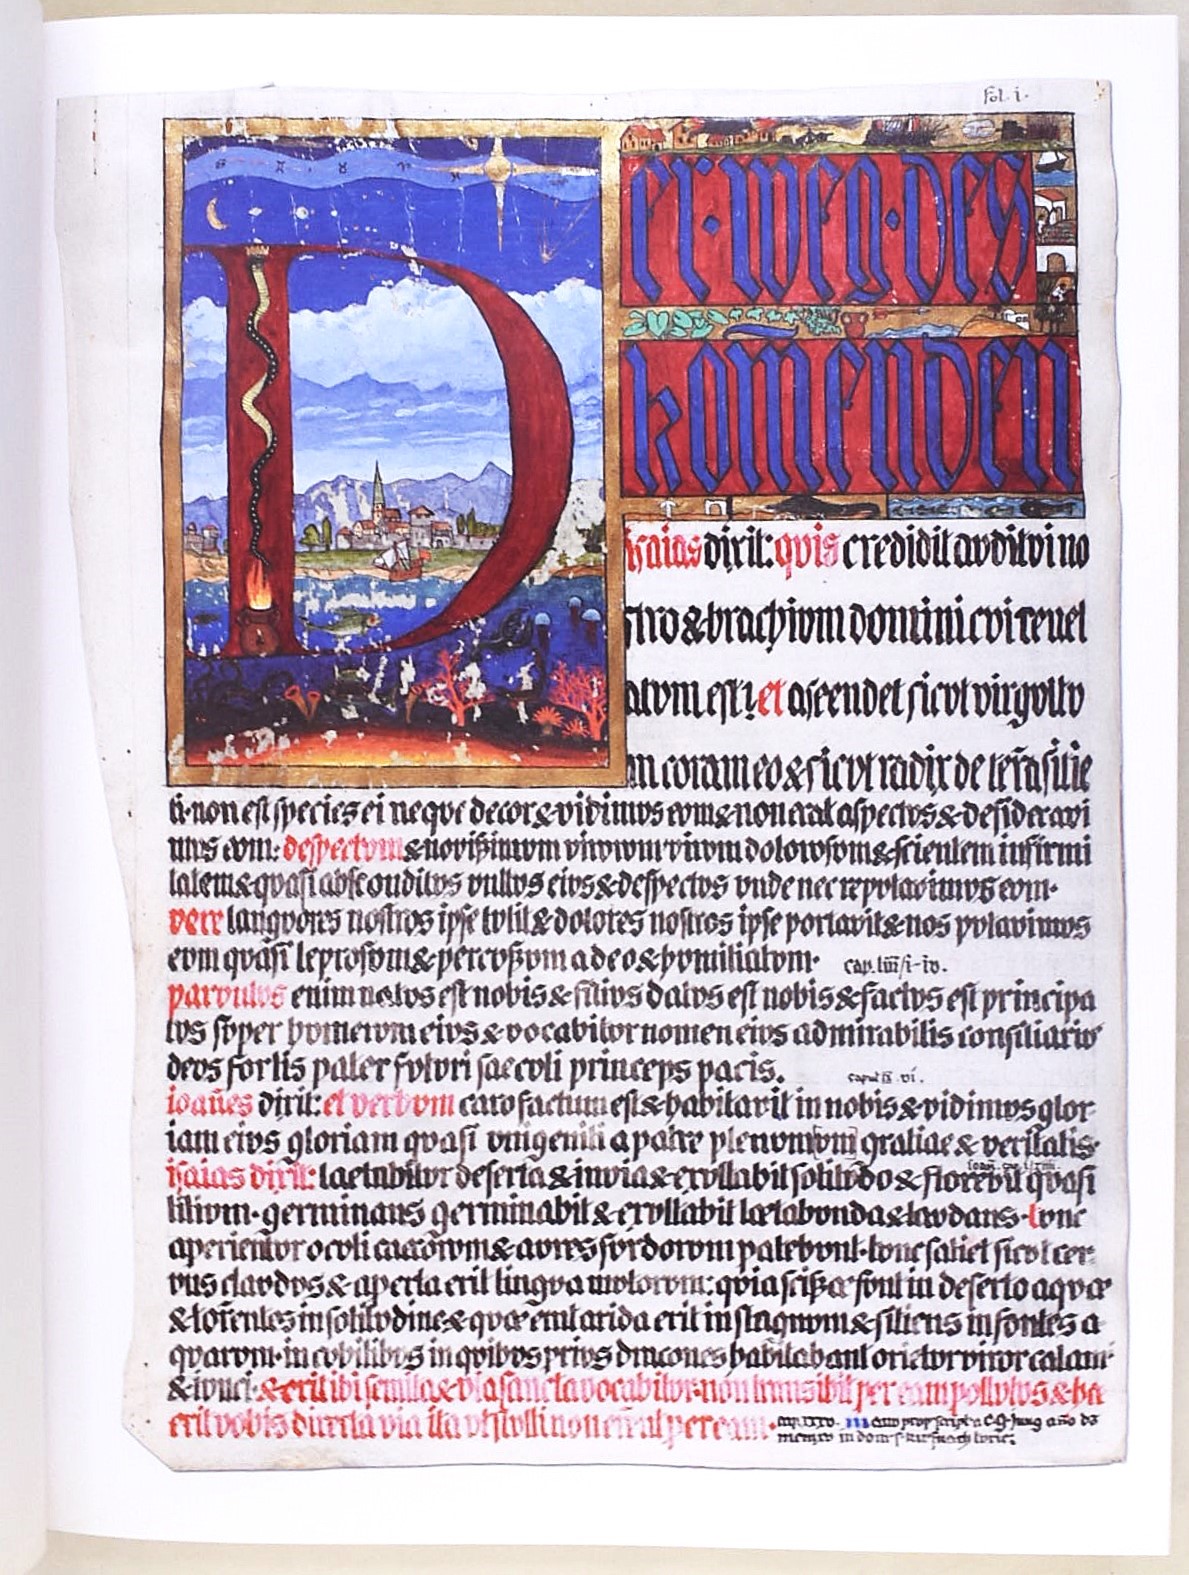 fol. i.
er · weg · des
komenden
isaias dixit: quis credidit auditui no
stro & brachium domini cui reuel
atum est? et ascendet sicut virgultu
m coram eo & sicut radix de terra sitie
ti · non est species ei neque decor & vidimus eum & non erat aspectus & desideravi
mus eum: despectum & novissimum virorum virum dolorosum & scientem infirmi
tatem & quasi absconditus vultus eius & despectus unde nec reputavimus eum ·
vere languores nostros ipse tulit & dolores nostros ipse portavit & nos putavimus
eum quasi leprosum & percussum a deo & humiliatum · cap. liii / i-iv.
parvulus enim natus est nobis & filius datus est nobis & factus est principa
tus super humerum eius & vocabitur nomen eius admirabilis consiliarius
deus fortis pater futuri saeculi princeps pacis.
ioañes dixit: et verbum caro factum est & habitavit in nobis & vidimus glor
iam eius gloriam quasi unigeniti a patre plenum gratiae & veritatis ·
isaias dixit: laetabitur deserta & invia & exultabit solitudo & florebit quasi
lilium · germinans germinabit & exultabit lætabunda & laudans · tunc
aperientur oculi caecorum & aures surdorum patebunt · tunc saliet sicut cer
vus claudus & aperta erit lingua mutorum: quia scissæ sunt in deserto aquæ
& torrentes in solitudine & quæ erat arida erit in stagnum & sitiens in fontes a
quarum · in cubilibus in quibus prius dracones habitabant orietur viror calami
& iunci · & erit ibi semita & via sancta vocabitur · non transibit per eam pollutus & hæc
erit vobis directa via ita ut stulti non errent per eam · cap. xxxv.